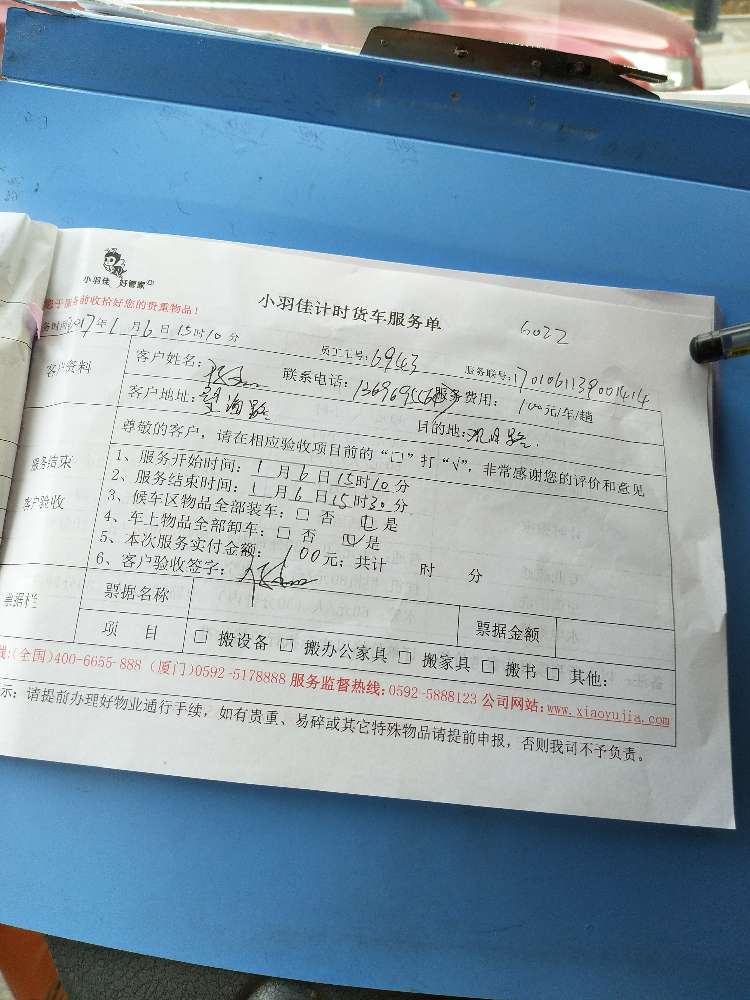 小羽佳 好管家
小羽佳计时货车服务单 6022
您于服务前收拾好您的贵重物品!
务时间:2017年1月6日15时10分 员工工号:6943 服务联号:1701061139001414
客户资料
客户姓名: 联系电话: 服务费用:100元/车/趟
客户地址:望海路 目的地:观日路
尊敬的客户,请在相应验收项目前的“□”打“√”,非常感谢您的评价和意见
服务结束
客户验收
1、服务开始时间:1月6日15时10分
2、服务结束时间:1月6日15时30分
3、候车区物品全部装车:□ 否 ☑ 是
4、车上物品全部卸车:□ 否 ☑ 是
5、本次服务实付金额:100元;共计 时 分
6、客户验收签字:
票据栏
票据名称 票据金额
项 目 □ 搬设备 □ 搬办公家具 □ 搬家具 □ 搬书 □ 其他:
线:(全国)400-6655-888 (厦门)0592-5178888 服务监督热线:0592-5888123 公司网站:www.xiaoyujia.com
示:请提前办理好物业通行手续,如有贵重、易碎或其它特殊物品请提前申报,否则我司不予负责。